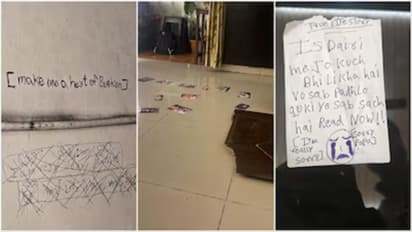 [make me a host of Bunker]
Is Dairi
me Jo kuch
Bhi Likha hai
vo sab Padhlo
Quki vo sab sach
hai Read Now!!
[I'm
really
sorry]
Sorry
Papa